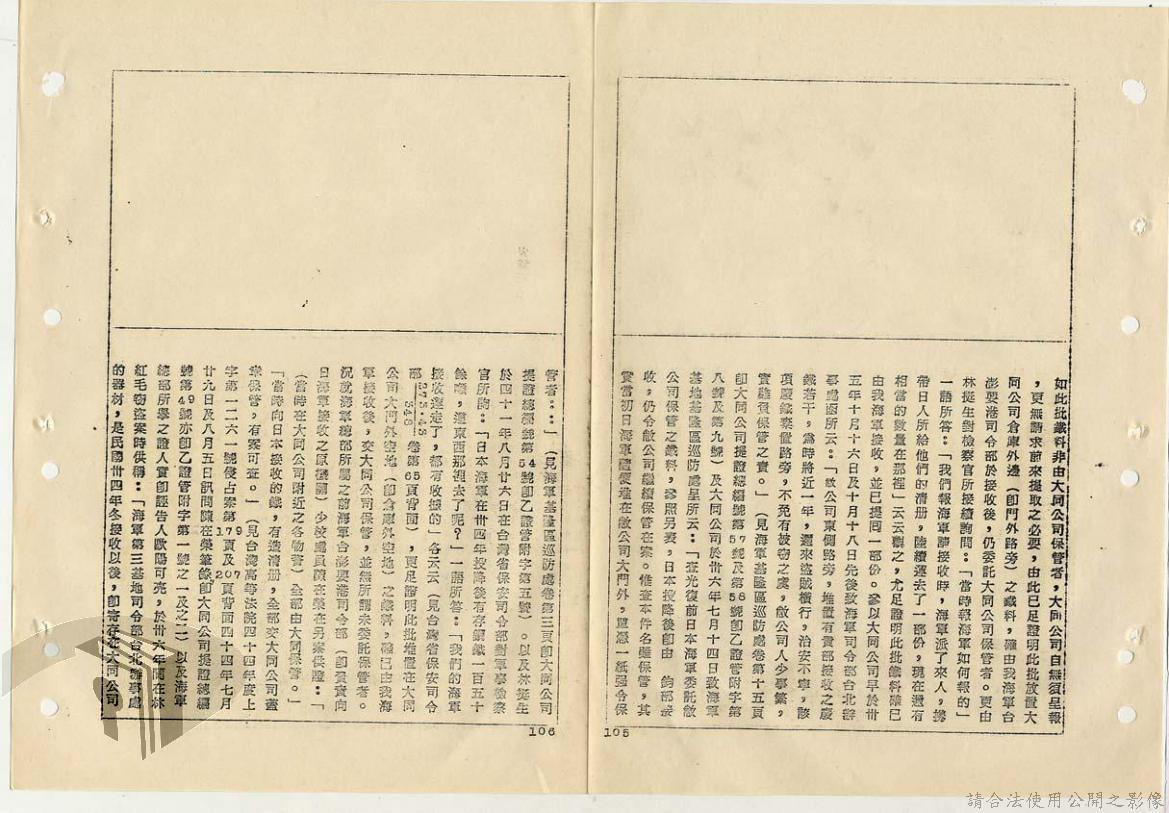 如此批鐵料非由大同公司保管者,大同公司自無須呈報
,更無請求前來提取之必要,由此已足證明此批放置大
同公司倉庫外邊(卽門外路旁)之鐵料,確由我海軍台
澎要港司令部於接收後,仍委託大同公司保管者。更由
林挺生對檢察官所接續詢問:「當時報海軍如何報的」
一語所答:「我們報海軍請接收時,海軍派了來人,携
帶日人所給他們的清册,陸續運去了一部份,現在還有
相當的數量在那裡」云云觀之,尤足證明此批鐵料確已
由我海軍接收,並已提囘一部份。參以大同公司早於卅
五年十月十六日及十月十八日先後致海軍司令部台北辦
事處函所云:「敝公司東側路旁,堆置有貴部接收之廢
鐵若干,當時將近一年,邇來盜賊橫行,治安不寧,該
項廢鐵棄置路旁,不免有被竊之虞,敝公司人少事繁,
實難負保管之責。」(見海軍基隆區巡防處卷第十五頁
卽大同公司提證總編號第57號及第56號卽乙證管附字第
八號及第九號)及大同公司於卅六年七月十四日致海軍
基地基隆區巡防處呈所云:「查光復前日本海軍委託敝
公司保管之鐵料,參照另表,日本投降後卽由 鈞部接
收,仍令敝公司繼續保管在案。惟查本件名雖保管,其
實當初日海軍隨便堆在敝公司大門外,單憑一紙强令保
105
管者:::」(見海軍基隆區巡防處卷第三頁卽大同公司
提證總編號第54號卽乙證管附字第五號)。以及林挺生
於四十一年八月廿六日在台灣省保安司令部對軍事檢察
官所詢:「日本海軍在卅四年投降後有存鋼鐵一百五十
餘噸,這東西那裡去了呢?」一語所答:「我們的海軍
接收運走了,都有收據的」各云云(見台灣省保安司令
部 卷第65頁背面),更足證明此批堆置在大同
公司大門外空地(卽倉庫外空地)之鐵料,確已由我海
軍接收後,交大同公司保管,並無所謂未委託保管者。
況就海軍總部所屬之前海軍台澎要港司令部(卽負責向
日海軍接收之原機關)少校處員陳在榮在另案供證:「
(當時在大同公司附近之各物資)全部由大同保管。」
「當時向日本接收的鐵,有造清册,全部交大同公司蓋
章保管,有案可查。」(見台灣高等法院四十四年度上
字第一二六一號侵占案第179頁及207頁背面四十四年七月
廿九日及八月五日訊問陳在榮筆錄卽大同公司提證總編
號第49號亦卽乙證管附字第一號之一及之二)以及海軍
總部所舉之證人實卽誣告人歐陽可亮,於卅六年間在林
紅毛竊盜案時供稱:「海軍第三基地司令部台北辦事處
的器材,是民國卅四年冬接收以後,卽寄存在大同公司
106
請合法使用公開之影像